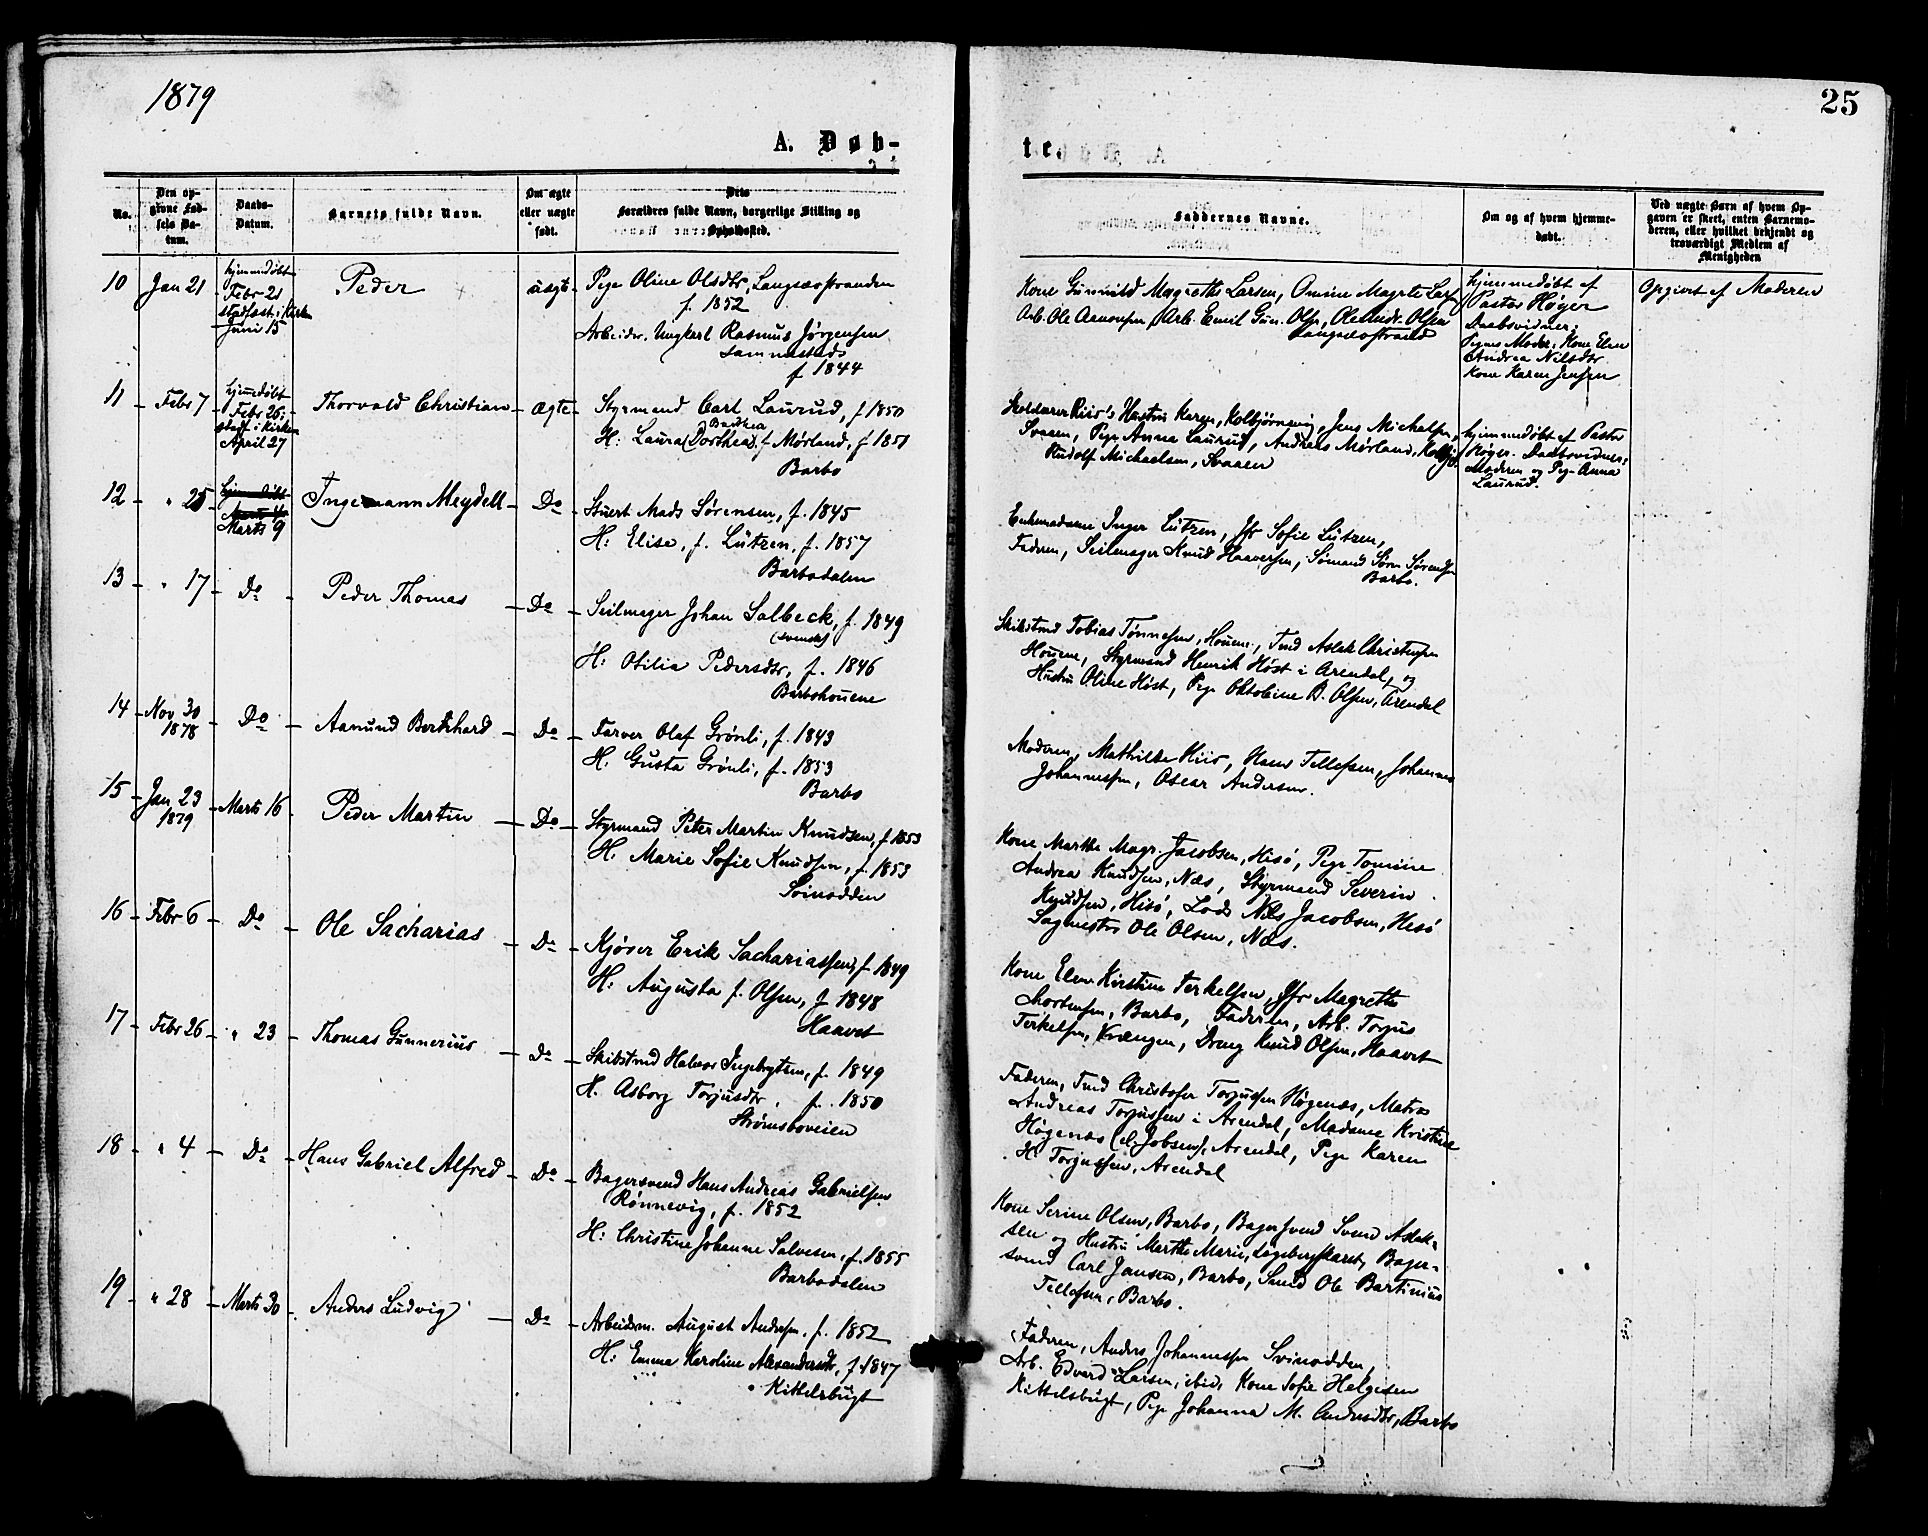 1879
25
A. Døb-
te.
No.
Den op-
givne Fød-
sels Da-
tum.
Daabs-
Datum.
Barnets fulde Navn.
Om ægte
eller uægte
født.
Dets
Forældres fulde Navn, borgerlige Stilling og
Opholdssted.
Faddernes Navne.
Om og af hvem hjemme-
døbt.
Ved uægte Børn af hvem Op-
gaven er skeet, enten Barnemo-
deren, eller hvilket bekjendt og
troværdigt Medlem af
Menigheden
10 Jan 21
hjemmedøbt
Febr 21
stadfæst. i Kirken
Juni 15
Peder
uægte
Pige Oline Olsdtr, Langsæostranden
f. 1852
Arbeider, Ungkarl Rasmus Jørgensen
sammesteds
f 1844
Kone Gunnild Magrethe Larsen, Omine Magrte Lars
Arb. Ole Aanonsen, Arb. Emil Gun. Olsen, Ole Andr. Olsen
Langsæostrand
hjemmedøbt af
Pastor Høyer
Daabsvidner:
Pigens Moder, Kone Elen
Andrea Nilsdtr
Kone Karen Jensen
Opgivet af Moderen
11 Febr 7
hjemmedøbt
Febr 26;
stadf. i Kirken
April 27
Thorvald Christian
ægte
Styrmand Carl Laurud, f 1850
Barthea
H: Laura (Dorthea) f. Mørland, f 1851
Barbo
Skolelærer Riis's Hustru Karen, Kolbjørnsvig, Jens Michalsen,
Svaaen, Pige Anna Laurud, Andreas Mørland, Kolbjø.
Rudolf Michaelsen, Svaaen
hjemmedøbt af Pastor
Høyer. Daabsvidner:
Moderen og Pige Anna
Laurud.
12 " 25
Marts 9
Ingemann Meydell
Do
Stuert Mads Sørensen, f. 1845
H: Elise, f. Lützen, f. 1857
Barbodalen
Enkemadame Inger Lützen, Jfr Sofie Lützen,
Faderen, Seilmager Knud Haaversen, Sømand Søren Sørensen
Barbo.
13 " 17
Do
Peder Thomas
Do
Seilmager Johan Salbeck, f. 1849
(svensk)
H: Otilia Pedersdtr, f. 1846
Barbohouene
Skibstmd Tobias Tønnesen, Houene, Tmd Aslak Christensen
Houene, Styrmand Henrik Høst i Arendal, og
Hustru Oline Høst, Pige Oktobine B. Olsen, Arendal
14 Nov 30
1878
Do
Aanund Berthard
Do
Farver Olaf Grönli, f. 1843
H. Gusta Grönli, f. 1853
Barbo
Moderen, Mathilde Riis, Hans Tellefsen, Johannes
Johannessen, Oscar Andersen.
15 Jan 23
1879
Marts 16
Peder Martin
Do
Styrmand Peter Martin Knudsen, f 1853
H. Marie Sofie Knudsen, f. 1853
Svinodden
Kone Marthe Magr. Jacobsen, Hisö, Pige Tomine
Andrea Knudsen, Næs, Styrmand Severin
Knudsen, Hisö, Lods Nils Jacobsen, Hisö
Sagmester Ole Olsen, Næs.
16 Febr 6
Do
Ole Sacharias
Do
Kjører Erik Sachariassen, f 1849
H. Augusta f. Olsen, f 1848
Haavet
Kone Elen Kirstine Terkelsen, Jfr Magrethe
Mortensen, Barbo, Faderen, Arb. Torjus
Terkelsen, Krængen, Dreng Knud Olsen, Haavet
17 Febr 26
" 23
Thomas Gunnerius
Do
Skibstmd Halvor Ingebrgtsen, f. 1849
H. Asborg Torjusdtr. f. 1850
Strømsboveien
Faderen, Tmd Christofer Torjussen Høgenæs, Matros
Andreas Torjussen i Arendal, Madame Kristine
Høgenæs (el. Jobsen), Arendal, Pige Karen
H. Torjussen, Arendal
18 " 4
Do
Hans Gabriel Alfred
Do
Bagersvend Hans Andreas Gabrielsen
Rønnevig, f. 1852
H: Christine Johanne Salvesen, f. 1855
Barbodalen
Kone Serine Olsen, Barbo, Bagersvend Svend Aslak-
sen og Hustru Marthe Marie, Løgebergskaret, Bager-
svend Carl Jansen, Barbo, Smed Ole Bartinius
Tellefsen, Barbo.
19 " 28
Marts 30
Anders Ludvig
Do
Arbeidsm. August Andersen, f. 1852
H: Emma Karoline Alexandersdtr, f. 1847
Kittelsbugt
Faderen, Anders Johannessen Svinodden,
Arb. Edvard Larsen, ibid, Kone Sofie Helgesen
Kittelsbugt, Pige Johanna M. Andersdtr, Barbo